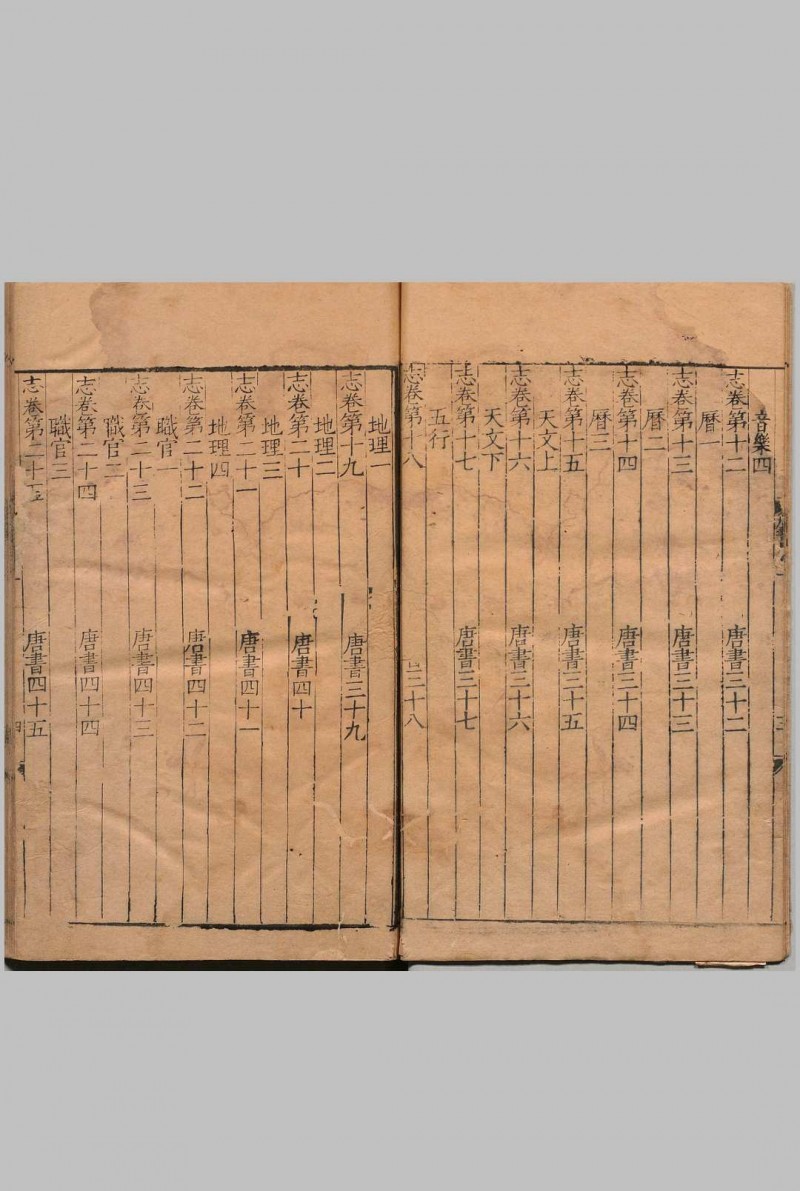 音樂四
志卷第十二 唐書三十二
曆一
志卷第十三 唐書三十三
曆二
志卷第十四 唐書三十四
曆三
志卷第十五 唐書三十五
天文上
志卷第十六 唐書三十六
天文下
志卷第十七 唐書三十七
五行
志卷第十八 三十八
地理一
志卷第十九 唐書三十九
地理二
志卷第二十 唐書四十
地理三
志卷第二十一 唐書四十一
地理四
志卷第二十二 唐書四十二
職官一
志卷第二十三 唐書四十三
職官二
志卷第二十四 唐書四十四
職官三
志卷第二十五 唐書四十五